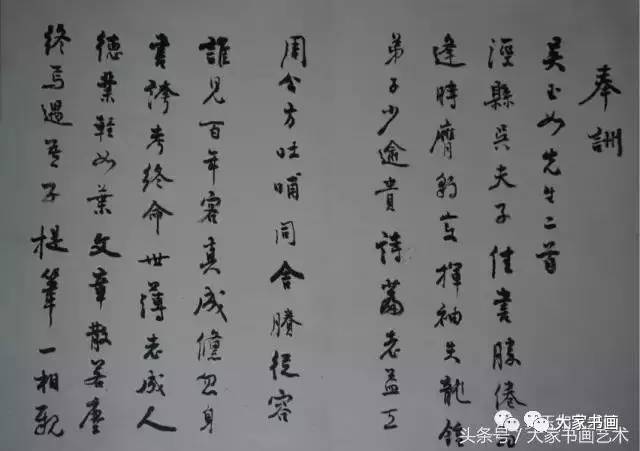 奉詶
吳玉如先生二首
涇縣吳夫子佳書勝倦
逢時膺豹變揮袖失龍鍾
弟子少逾貴詩篇老益工
周公方吐哺同舍賸從容
誰見百年客真成儵忽身
書誇考終命世薄老成人
德業輕如葉文章散若塵
終焉過吾子提筆一相親
大家书画
头条号／大家书画艺术